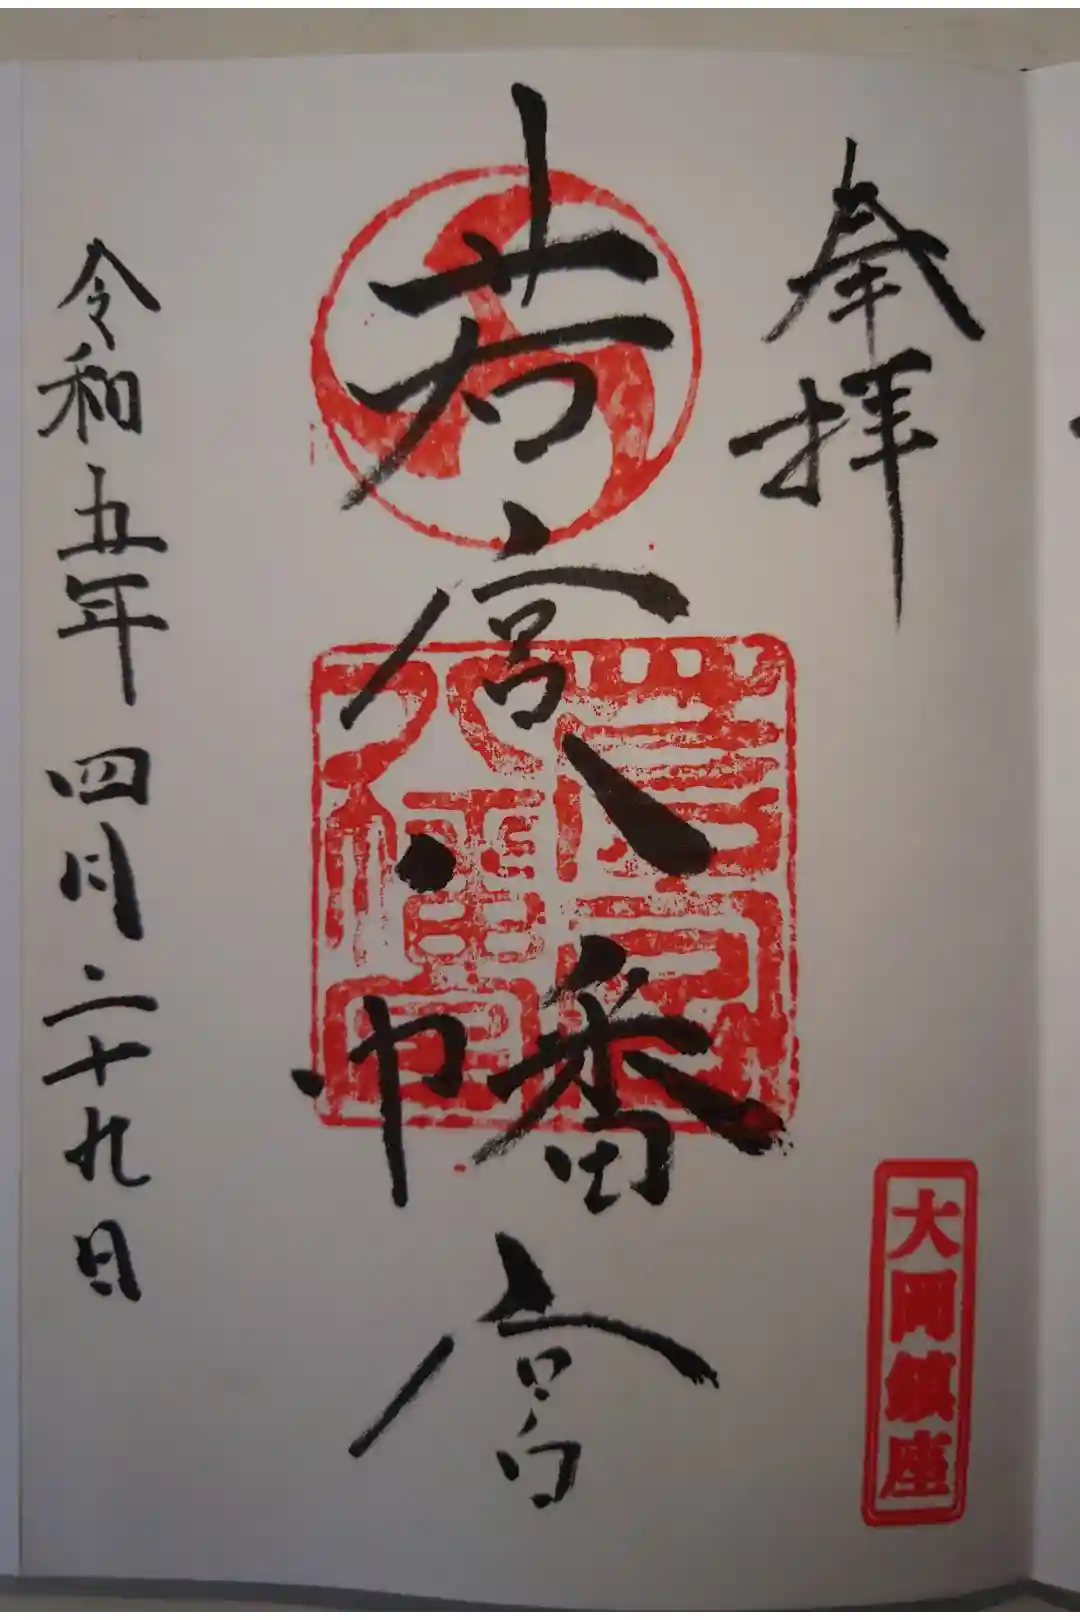 奉拝
大岡鎮座
若宮八幡宮
若宮八幡宮
令和五年四月二十九日